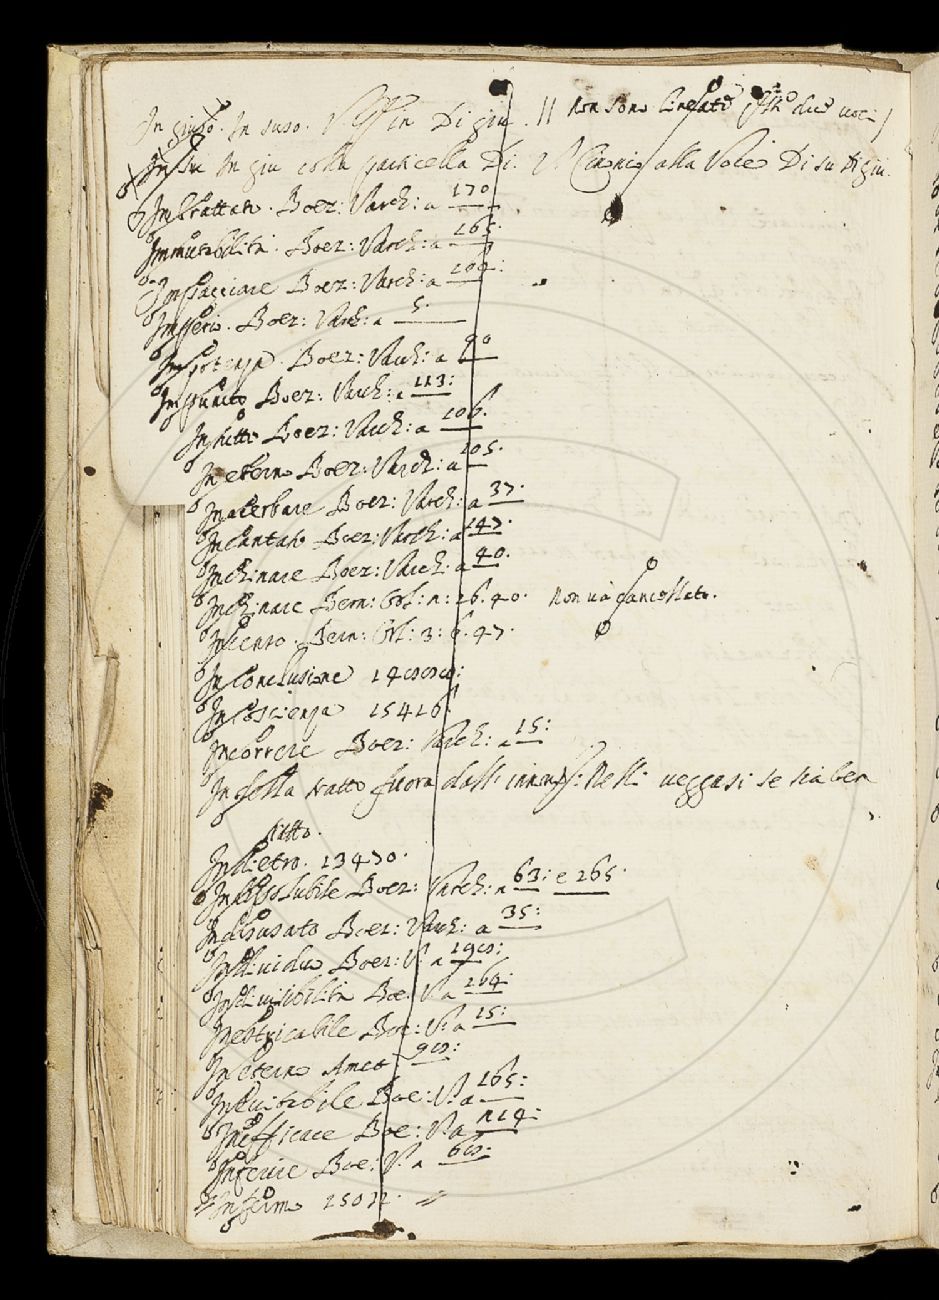 In giuso. In suso. V. in Di giu. // non sono lineate queste due voci /
In su In giu colla particella Di. V. alla Voce Di su Di giu.
Imbrattato. Boez: Varch: a 170
Immutabilità. Boez: Varch: a 265.
Impacciare Boez: Varch: a 104:
Imperio. Boez: Varch: a 5.
Impotenza. Boez: Varch: a 90
Impunito Boez: Varch: a 113:
In Boez: Varch: a 106.
In eterno Boez: Varch: a 105.
Inacerbare Boez: Varch: a 37.
Incantato Boez: Varch: a 147.
Inchinare Boez: Varch: a 40.
Inchinare Bern: Orl: n: 26. 40. non và cancellato.
Incenso. Bern: Orl: 3: 6. 47.
In conclusione
In coscienza 15416.
Incorrere Boez: Varch: a 15:
In tratto fuora dalli Nelli veggasi se sia ben
fatto.
Indietro. 13470.
Indissolubile Boez: Varch: a 63: e 265.
Indisusato Boez: Varch: a 35:
Individuo Boez: V: a
Indivisibilità Boe: V: a 264:
Inestricabile Boe: V: a 15:
In eterno Amet
Inevitabile Boe: V: a 265:
Inefficace Boe: V: a 114:
Inferire Boe: V: a
Infermo